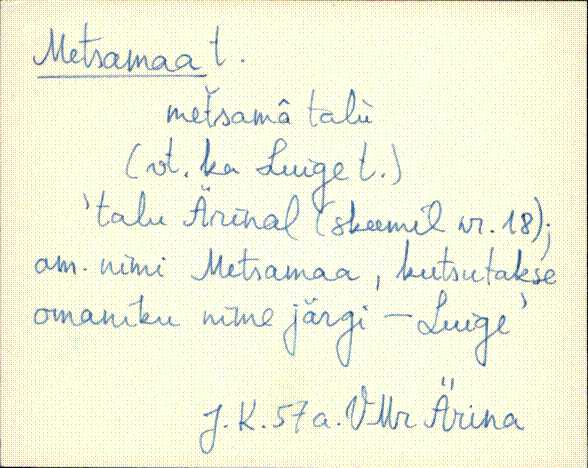 Metsamaa t.
metšamâ talù
(vt. ka Luige t.)
'talu Ärinal (skeemil nr. 18);
am. nimi Metsamaa, kutsutakse
omaniku nime järgi – Luige'
J. K. 57 a. VMr Ärina